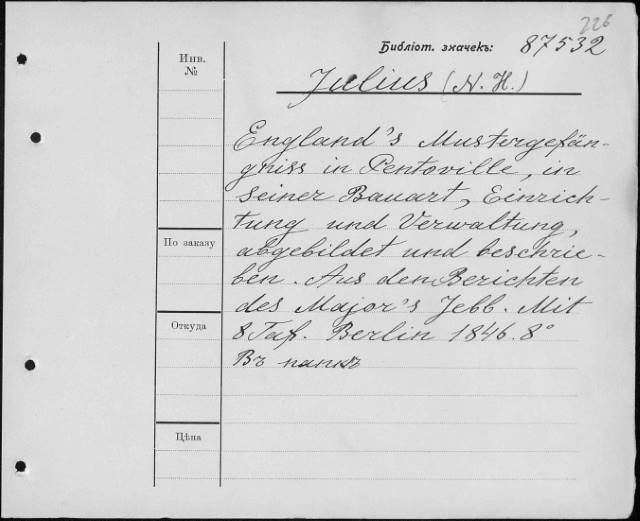 226
Библіот. значекъ: 87532
Инв.
№
Julius (N. H.)
England's Mustergefän-
gniss in Pentoville, in
seiner Bauart, Einrich-
tung und Verwaltung,
abgebildet und beschrie-
ben. Aus den Berichten
des Major's Jebb. Mit
8 Taf. Berlin 1846. 8°
Въ папкѣ
По заказу
Откуда
Цѣна